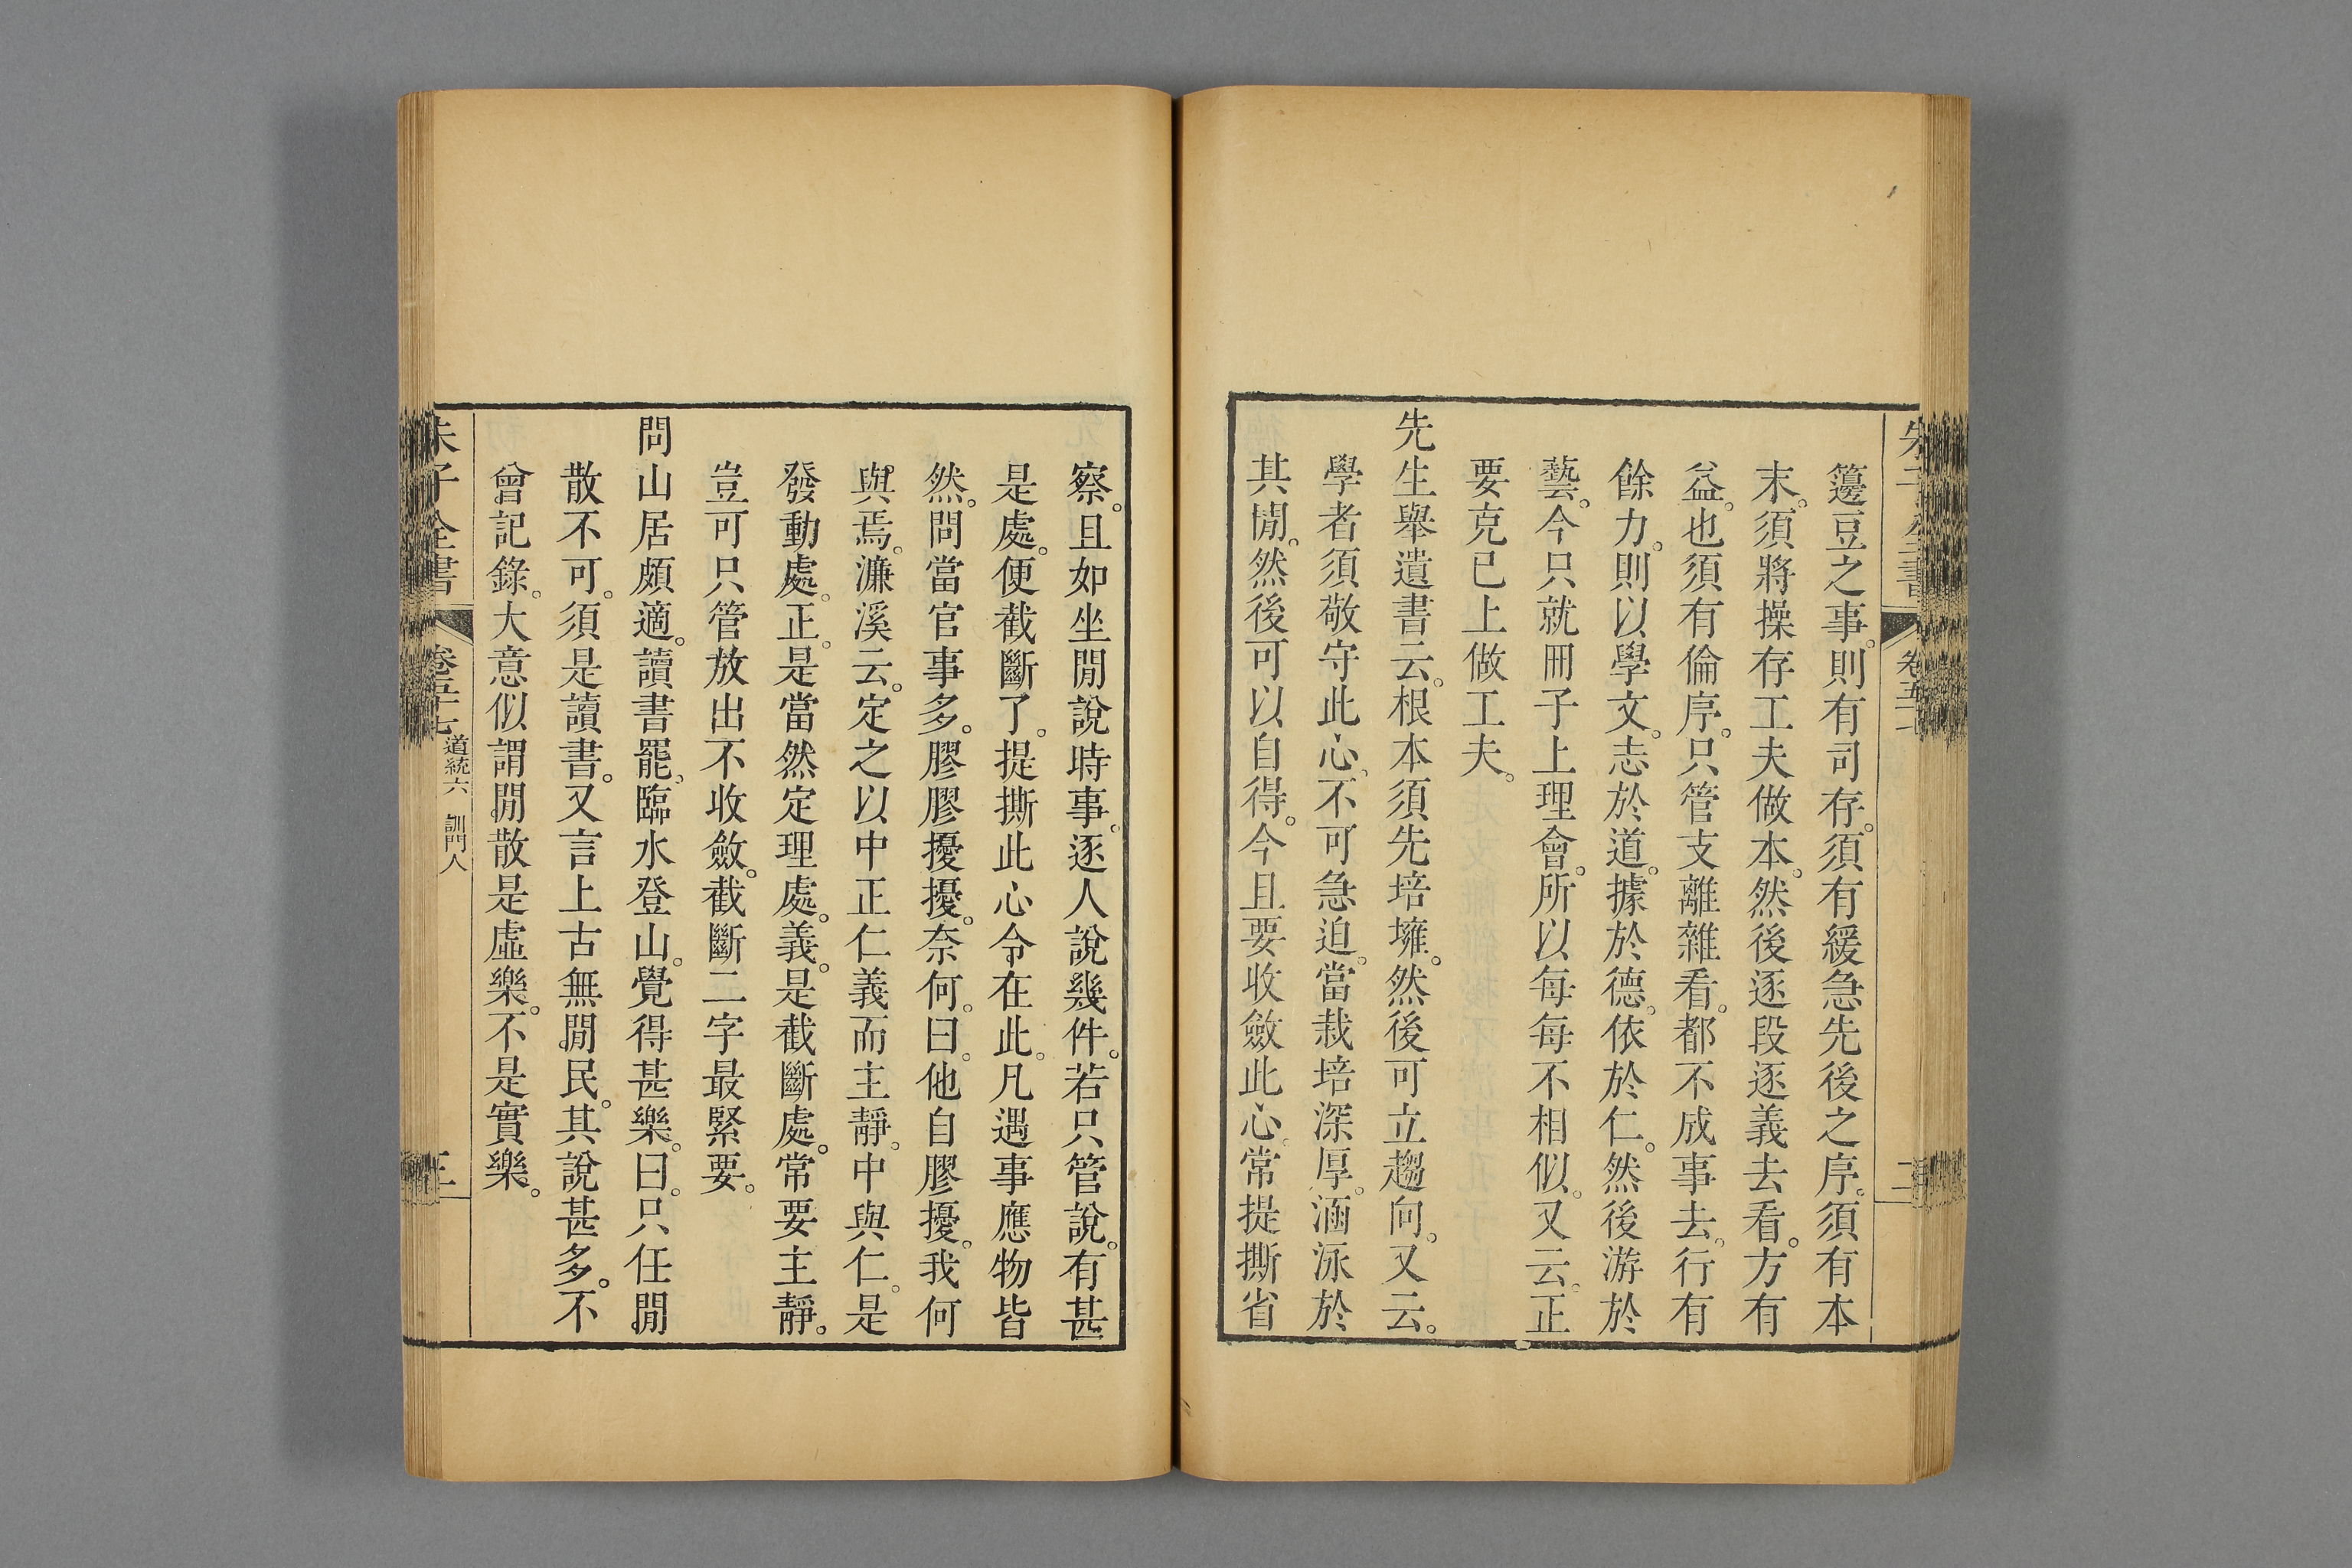 籩豆之事。則有司存。須有緩急先後之序。須有本
末。須將操存工夫做本。然後逐段逐義去看。方有
益。也須有倫序。只管支離雜看。都不成事去。行有
餘力。則以學文。志於道。據於德。依於仁。然後游於
藝。今只就冊子上理會。所以每每不相似。又云。正
要克已上做工夫。
先生舉遺書云。根本須先培壅。然後可立趨向。又云。
學者須敬守此心。不可急迫。當栽培深厚。涵泳於
其閒。然後可以自得。今且要收斂此心。常提撕省
察。且如坐閒說時事。逐人說幾件。若只管說。有甚
是處。便截斷了。提撕此心令在此。凡遇事應物皆
然。問當官事多。膠膠擾擾。奈何。曰。他自膠擾。我何
與焉。濂溪云。定之以中正仁義而主靜。中與仁。是
發動處。正。是當然定理處。義。是截斷處。常要主靜。
豈可只管放出不收斂。截斷二字最緊要。
問山居頗適。讀書罷。臨水登山。覺得甚樂。曰。只任閒
散不可。須是讀書。又言上古無閒民。其說甚多。不
曾記錄。大意似謂閒散是虛樂。不是實樂。
朱子全書 卷五十七 道統六 訓門人 三